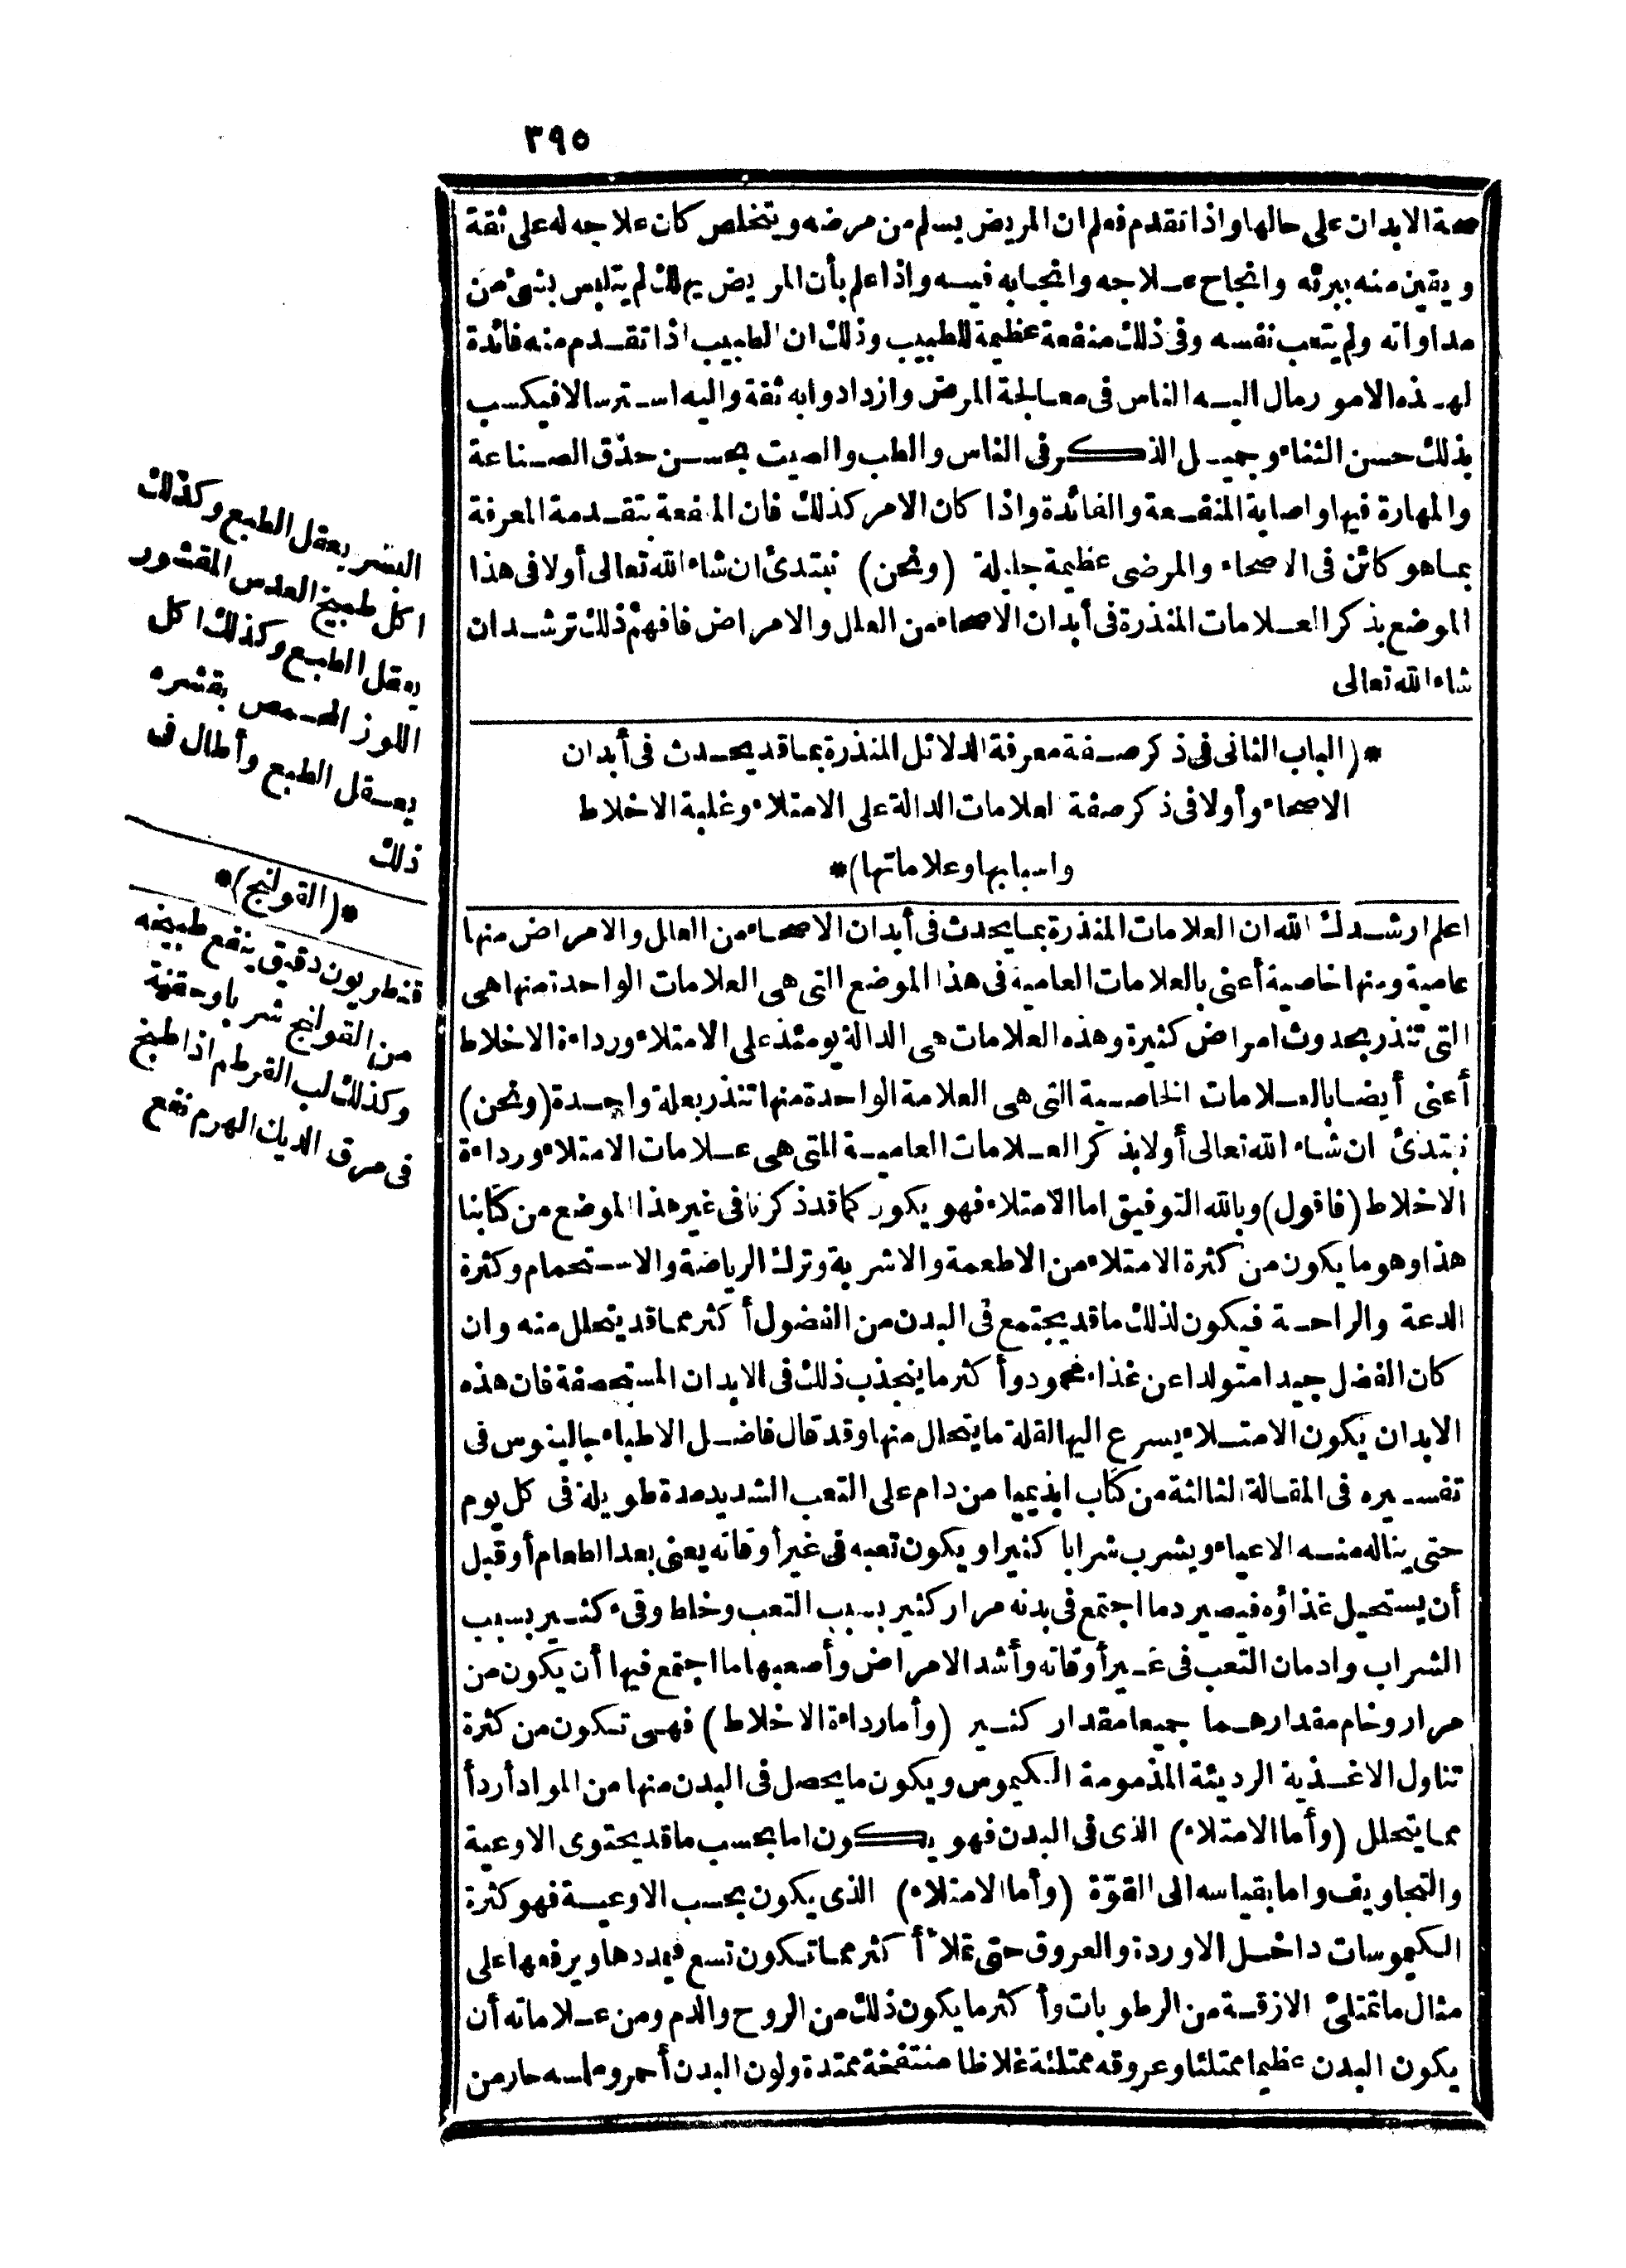 ٣٩٥
صحة الابدان على حالها واذا تقدم فعلم ان المريض يسلم من مرضه ويتخلص كان علاجه له على ثقة
ويقين منه ببرئه وانجاح علاجه وانجابه فيه واذا علم بأن المريض يهلك لم يتلبس بشئ من
مداواته ولم يتعب نفسه وفى ذلك منفعة عظيمة للطبيب وذلك ان الطبيب اذا تقدم منه فائدة
لهذه الامور مال اليه الناس فى معالجة المرض وازدادوا به ثقة واليه استرسالا فيكسب
بذلك حسن الثناء وجميل الذكر فى الناس والطب والصيت بحسن حذق الصناعة
والمهارة فيها واصابة المنفعة والفائدة واذا كان الامر كذلك فان المنفعة بتقدمة المعرفة
بما هو كائن فى الاصحاء والمرضى عظيمة جليلة (ونحن) نبتدئ ان شاء الله تعالى أولا فى هذا
الموضع بذكر العلامات المنذرة فى أبدان الاصحاء من العلل والامراض فافهم ذلك ترشد ان
شاء الله تعالى
*(الباب الثانى فى ذكر صفة معرفة الدلائل المنذرة بما قد يحدث فى أبدان
الاصحاء وأولا فى ذكر صفة العلامات الدالة على الامتلاء وغلبة الاخلاط
واسبابها وعلاماتها)*
اعلم ارشدك الله ان العلامات المنذرة بما يحدث فى أبدان الاصحاء من العلل والامراض منها
عامية ومنها خاصية أعنى بالعلامات العامية فى هذا الموضع التى هى العلامات الواحدة منها هى
التى تنذر بحدوث امراض كثيرة وهذه العلامات هى الدالة يومئذ على الامتلاء ورداءة الاخلاط
أعنى أيضا بالعلامات الخاصية التى هى العلامة الواحدة منها تنذر بعلة واحدة (ونحن)
نبتدئ ان شاء الله تعالى أولا بذكر العلامات العامية التى هى علامات الامتلاء ورداءة
الاخلاط (فاقول) وبالله التوفيق اما الامتلاء فهو يكون كما قد ذكرنا فى غير هذا الموضع من كتابنا
هذا وهو ما يكون من كثرة الامتلاء من الاطعمة والاشربة وترك الرياضة والاستحمام وكثرة
الدعة والراحة فيكون لذلك ما قد يجتمع فى البدن من الفضول أكثر مما قد يتحلل منه وان
كان الفضل جيدا متولدا عن غذاء محمود وأكثر ما ينجذب ذلك فى الابدان المستحصفة فان هذه
الابدان يكون الامتلاء يسرع اليها لقلة ما يتحلل منها وقد قال فاضل الاطباء جالينوس فى
تفسيره فى المقالة الثالثة من كتاب ابذيميا من دام على التعب الشديد مدة طويلة فى كل يوم
حتى يناله منه الاعياء ويشرب شرابا كثيرا ويكون تعبه فى غير أوقاته يعنى بعد الطعام أو قبل
أن يستحيل غذاؤه فيصير دما اجتمع فى بدنه مرار كثير بسبب التعب وخلط وقىء كثير بسبب
الشراب وادمان التعب فى غير أوقاته وأشد الامراض وأصعبها ما اجتمع فيها أن يكون من
مرار وخام مقدارهما جميعا مقدار كثير (وأما رداءة الاخلاط) فهى تكون من كثرة
تناول الاغذية الرديئة المذمومة الكيموس ويكون ما يحصل فى البدن منها من المواد أردأ
مما يتحلل (وأما الامتلاء) الذى فى البدن فهو يكون اما بحسب ما قد يحتوى الاوعية
والتجاويف واما بقياسه الى القوّة (وأما الامتلاء) الذى يكون بحسب الاوعية فهو كثرة
الكيموسات داخل الاوردة والعروق حتى تملأ أكثر مما تكون تسع فيمددها ويرفعها على
مثال ما تمتلئ الازقة من الرطوبات وأكثر ما يكون ذلك من الروح والدم ومن علاماته أن
يكون البدن عظيما ممتلئا وعروقه ممتلئة غلاظا منتفخة ممتدة ولون البدن أحمر وملمسه حار من
النشر يعقل الطبع وكذلك
اكل طبيخ العدس المقشور
يعقل الطبع وكذلك اكل
اللوز المحمص بقشره
يعقل الطبع وأطال فى
ذلك
*(القولنج)*
قنطريون دقيق ينفع طبيخه
من القولنج شربا وحقنة
وكذلك لب القرطم اذا طبخ
فى مرق الديك الهرم نفع